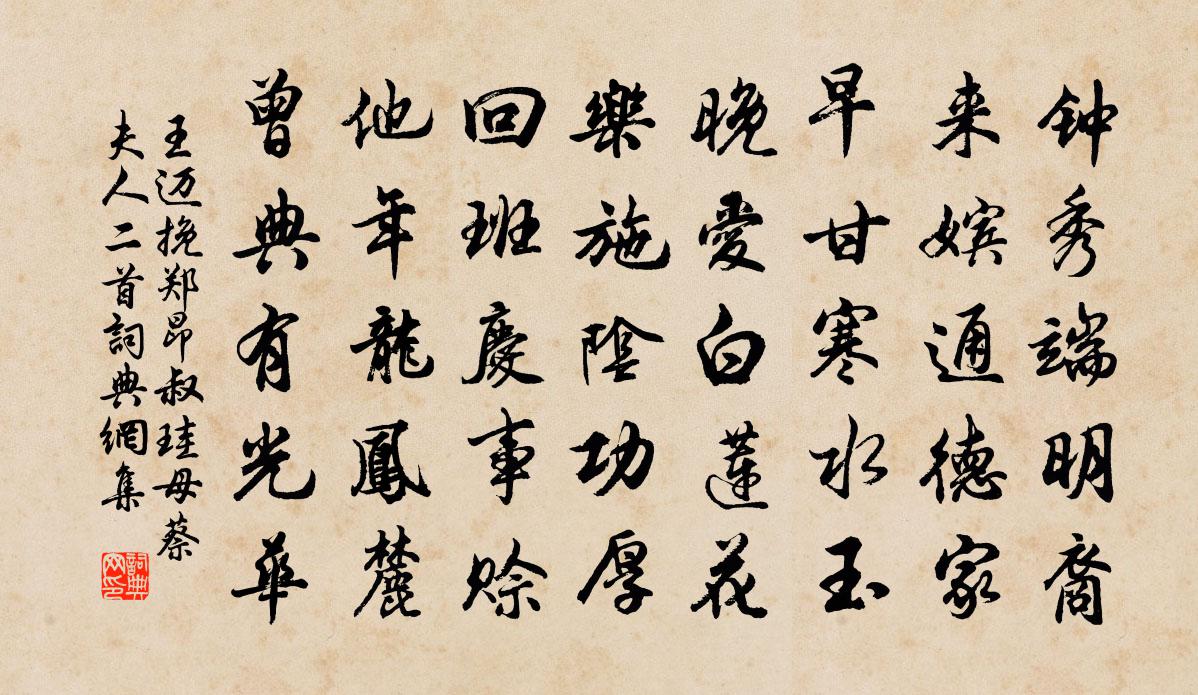 钟秀端明裔
来嫔通德家
早甘寒水玉
晚爱白莲花
樂施陰功厚
回班慶事赊
他年龍鳳麓
曾典有光華
王迈挽郑昂叔珪母蔡
夫人二首詞典網集
詞典
网印